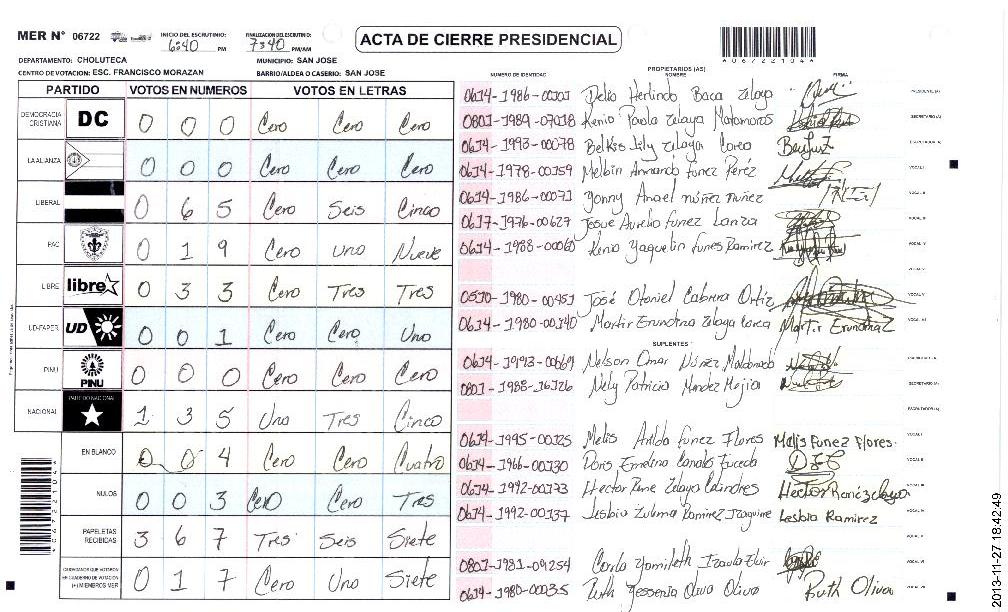 MER N° 06722
INICIO DEL ESCRUTINIO: 6:40 PM
FINALIZACION DEL ESCRUTINIO: 7:40 PM/AM
ACTA DE CIERRE PRESIDENCIAL
*06722104*
DEPARTAMENTO: CHOLUTECA
MUNICIPIO: SAN JOSE
CENTRO DE VOTACION: ESC. FRANCISCO MORAZAN
BARRIO/ALDEA O CASERIO: SAN JOSE
PARTIDO VOTOS EN NUMEROS VOTOS EN LETRAS
DEMOCRACIA CRISTIANA DC 0 0 0 Cero Cero Cero
LA ALIANZA 0 0 0 Cero Cero Cero
LIBERAL 0 6 5 Cero Seis Cinco
PAC 0 1 9 Cero Uno Nueve
LIBRE libre 0 3 3 Cero Tres Tres
UD-FAPER UD 0 0 1 Cero Cero Uno
PINU PINU 0 0 0 Cero Cero Cero
NACIONAL PARTIDO NACIONAL 1 3 5 Uno Tres Cinco
EN BLANCO 0 0 4 Cero Cero Cuatro
NULOS 0 0 3 Cero Cero Tres
PAPELETAS RECIBIDAS 3 6 7 Tres Seis Siete
CIUDADANOS QUE VOTARON EN CUADERNO DE VOTACION (+) MIEMBROS MER 0 1 7 Cero Uno Siete
PROPIETARIOS (AS)
NUMERO DE IDENTIDAD NOMBRE FIRMA
0614-1986-00101 Delio Herlindo Baca Zelaya PRESIDENTE (A)
0801-1989-07018 Kenia Paola Zelaya Matamoros SECRETARIO (A)
0614-1993-00078 Belkis Lily Zelaya Corea ESCRUTADOR (A)
0614-1978-00159 Melbin Armando Funez Peréz VOCAL I
0614-1986-00071 Yonny Anael núñez nuñez VOCAL II
0617-1976-00627 Josue Aurelio Funez Lanza VOCAL III
0614-1988-00060 Kenia Yaquelin Funes Ramirez VOCAL IV
0510-1980-00451 José Otoniel Cabrera Ortiz VOCAL V
0614-1980-00140 Martir Erundina Zelaya Corea Martir Erundina Z
SUPLENTES
Nelson Omar Núñez Maldonado
0801-1988-16126 Nely Patricia Mendez Mejia SECRETARIO (A)
ESCRUTADOR (A)
0614-1995-00125 Melis Funez Flores Melis Funez Flores. VOCAL I
0614-1966-00130 Doris VOCAL II
0614-1992-00173 Hector Rene Zelaya Hector René Zelaya VOCAL III
0614-1992-00137 Lesbia Zulema Ramirez Lesbia Ramirez VOCAL IV
0801-1981-09254 VOCAL VI
0614-1980-00035 Ruth Yessenia Oliva Oliva Ruth Oliva
2013-11-27 18:42:49